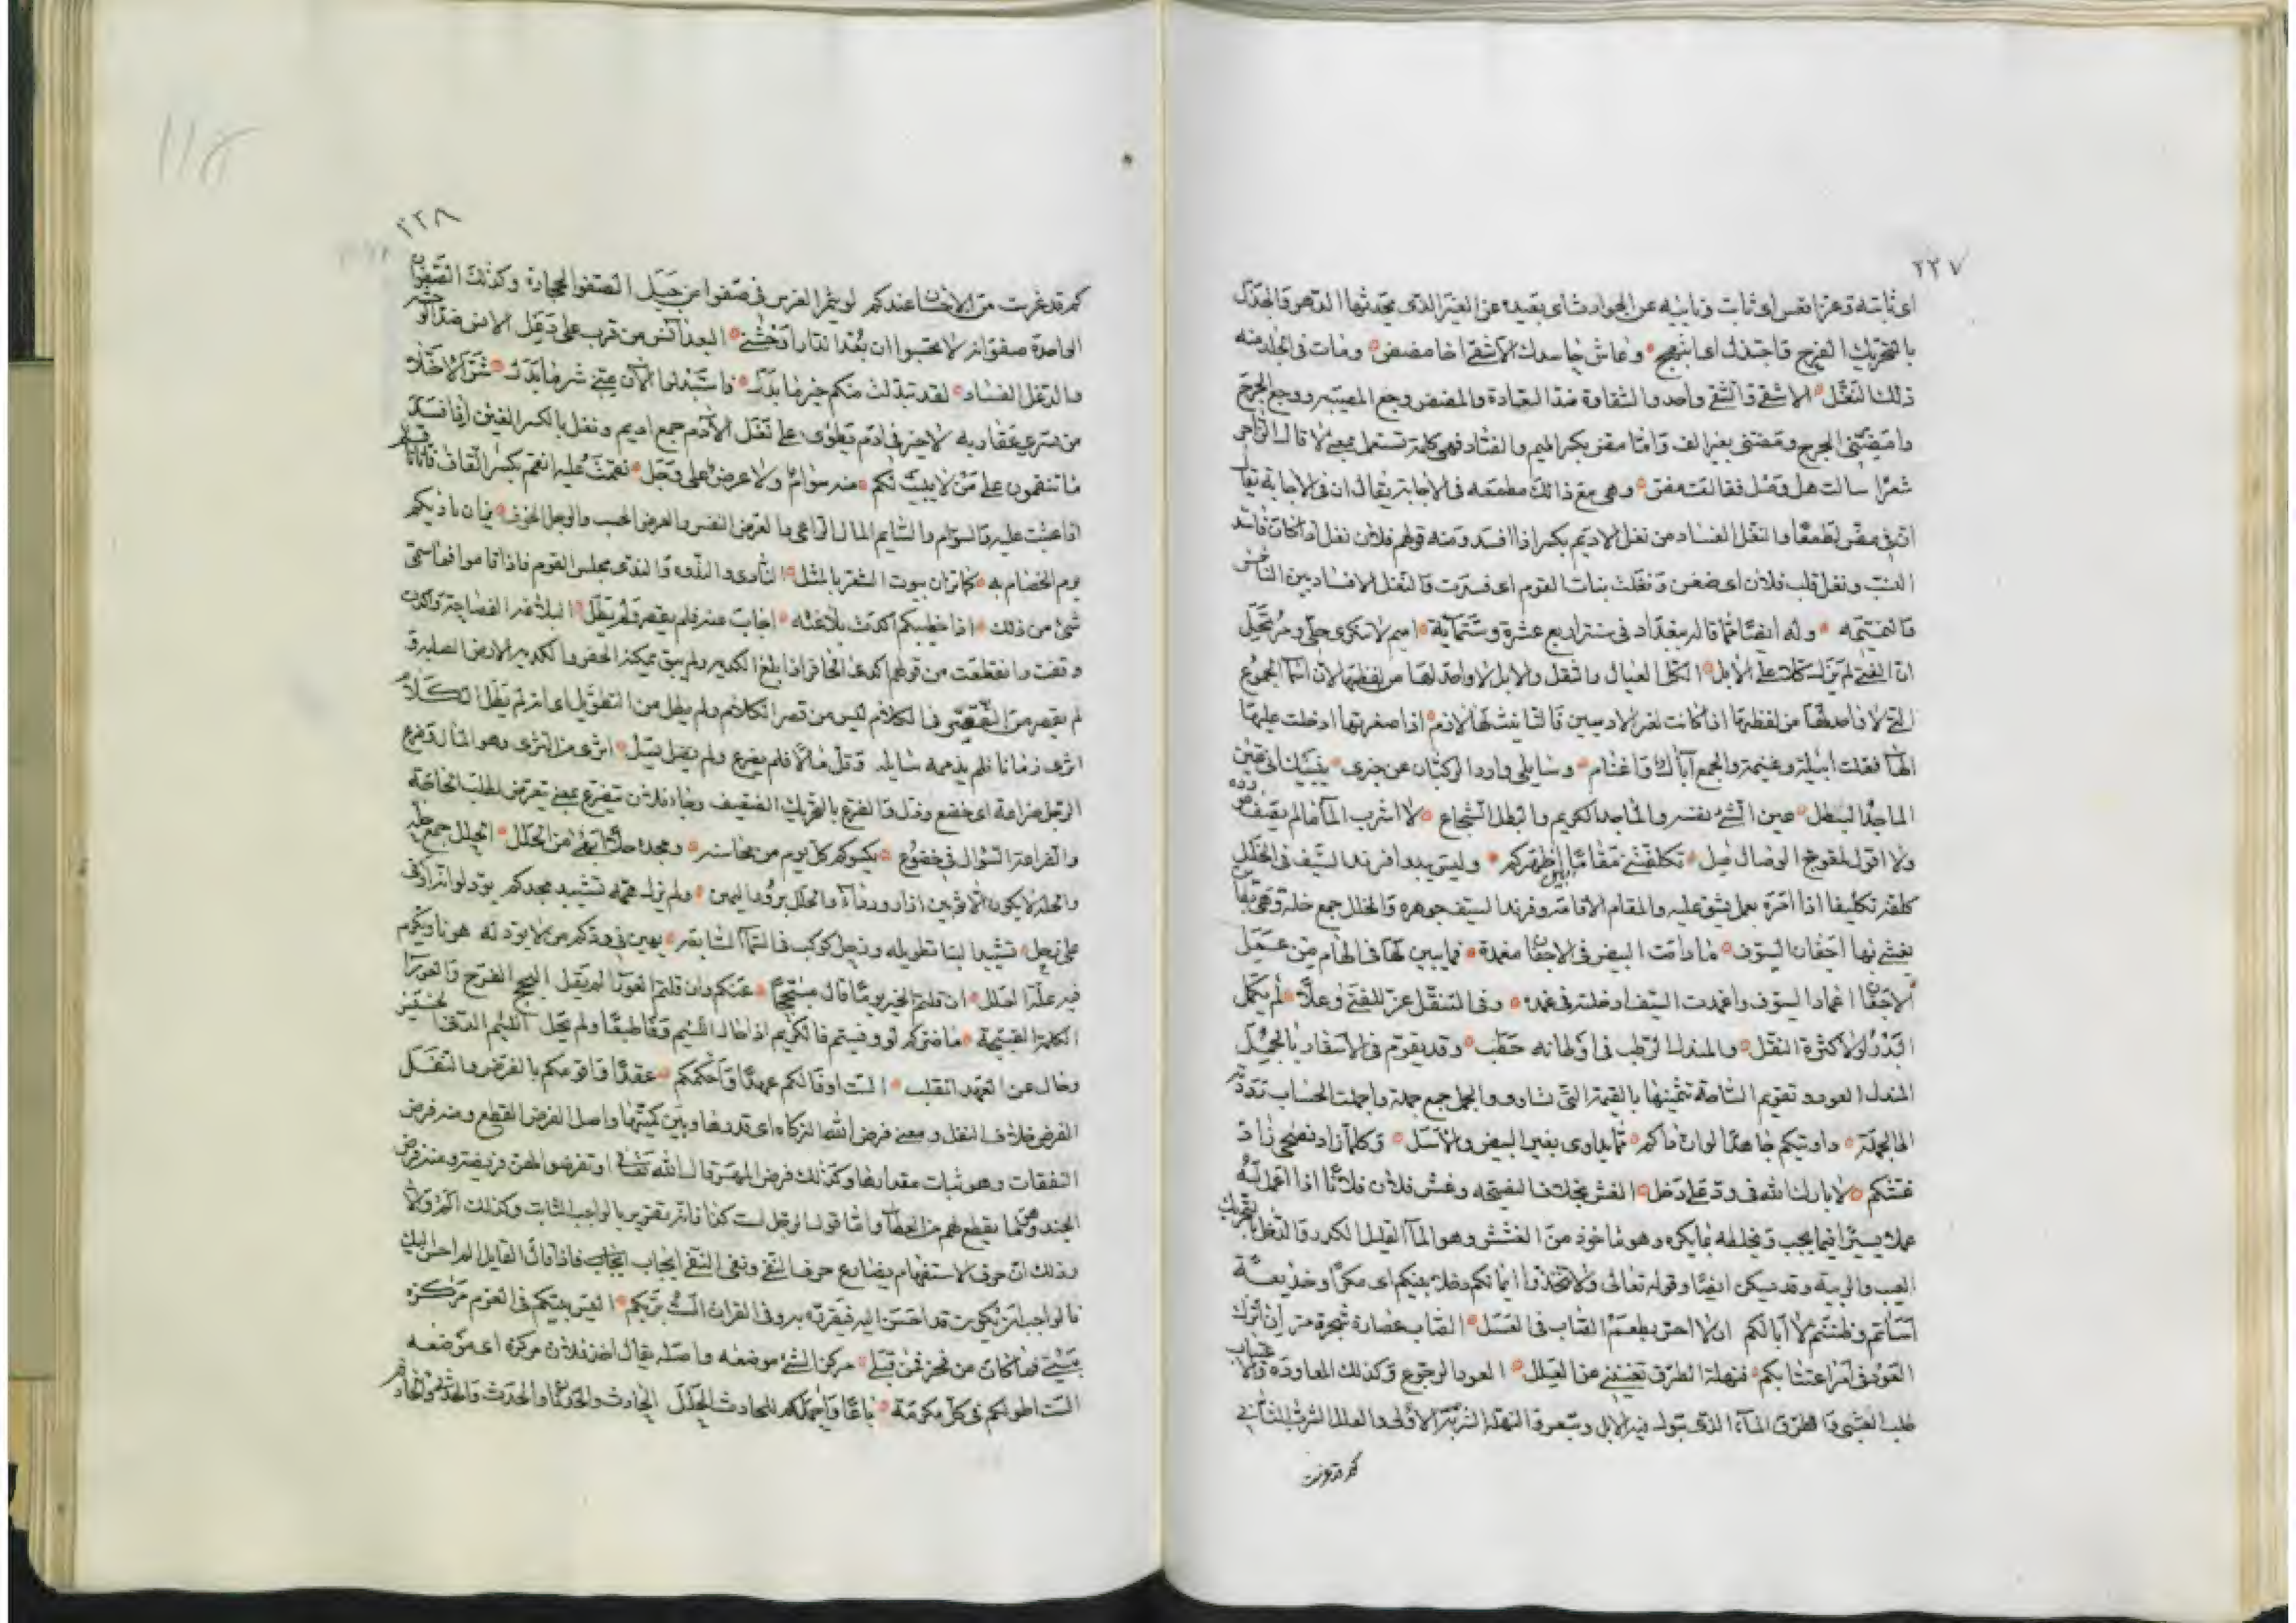 ٢٣٧
اى ثباته وعز اقعس اى ثابت ونائيه عن الحوادث اى بعيده عن الغير الذى يحدثها الدهر والجذل
بالتحريك الفرح فاجتذل اى ابتهج وعاش حاسدك الاشقى اخا مضض ومات فى الجلد منه
ذلك النغل الاشقى والشقى واحد والشقاوة ضد السعادة والمضض وجع المصيبه ووجع الجرح
وامضنى الجرح ومضنى بغير الف واما مض بكسر الميم والضاد فهى كلمة تستعمل بمعنى لا قال الراجز
شعرا سالت هل وصل فقالت مض وهى مع ذلك مطمعه فى الاجابة يقال ان فى الاجابة
ان فى مض لطمعا والنغل الفساد من نغل الاديم بكسر اذا فسد ومنه قولهم فلان نغل اذا كان فاسد
النسب ونغل قلب فلان اى ضغن ونغلت نيات القوم اى فسدت والنغل الافساد بين الناس
والنميمه وله ايضا مما قاله ببغداد فى سنة اربع عشرة وستمائة
ان الفتى لم يزل كلا على الابل الكل العيال والثقل والابل لا واحد لها من لفظها لان اسما الجموع
التى لا واحد لها من لفظها اذا كانت لغير الادميين فالتانيث لها لازم اذا صغرتها ادخلت عليها
الها فقلت ابيله وغنيمه والجمع آبال واغنام وسايلى وارد الركبان عن خبرى
الماجد البطل عين الشئ نفسه والماجد الكريم والبطل الشجاع لا اشرب المآ ما لم يصف
ولا اقول لمعوج الوصال صل تكلفنى مقاما بين اظهركم وليس يبدو فرند السيف فى الخلل
كلفته تكليفا اذا امرة بعمل يشق عليه والمقام الاقامة وفرند السيف جوهره والخلل جمع خله وهى
يغشى بها اجفان السيوف ما دامت البيض فى الاجفان مغمدة فما يبين لها فى الهام من عمل
الاجفان اغماد السيوف واغمدت السيف ادخلته فى غمده وفى التنقل عز للفتى وعلا لم يكمل
البدر لولا كثرة النقل والمندل الرطب فى اوطانه حطب وقد يقوم فى الاسفار بالجمل
المندل العود وتقويم السلعة تثمينها بالقيمة التى تساوى والجمل جمع جملة واجملت الحساب
الى الجملة داويتكم جاهدا لو ان داكم مما يداوى بغير البيض والاسل وكلما زاد نصحى زاد
غشكم لا بارك الله فى ود على دخل الغش بخلاف النصيحه وغش فلان فلانا اذا
عمله يسيرا فيما يحب وخلطه بما يكره وهو ماخوذ من الغشش وهو المآ القليل الكدر والدخل بالتحريك
العيب والريبه وقد يسكن ايضا وقوله تعالى ولا تتخذوا ايمانكم دخلا بينكم اى مكرا وخديعة
اساتم وظننتم لا ابا لكم ان لا احس بطعم الصاب فى العسل الصاب عصارة شجرة مر ان اترك
العود فى امر اعتابكم فنهلة الطرق تغنينى عن العلل العود الرجوع وكذلك المعاودة والاعتاب
طلب العتبى والطرق المآء الذى تبول فيه الابل وتبعر والنهل الشرب الاول والعلل الشرب الثانى
كم قد غرست
٢٣٨
كم قد غرست من الاحسان عندكم لو يثمر الغرس فى صفوان من جبل الصفوا الحجارة وكذلك الصفوان
الواحدة صفوانه لا تحسبوا ان بعد الدار اوحشنى البعد آنس من قرب على دخل الانس ضد
والدغل الفساد لقد تبدلت منكم خير ما بدل واستبدلوا الآن منى شر ما بدل شر الاخلا
من تسرى عقاربه لا خير فى ادم يطوى على نغل الادم جمع اديم ونغل بالكسر الغين اى فسد
ما تنقمون على من لا يبيت لكم منه سوام ولا عرض على وجل نقمت عليه انقم بكسر القاف فانا ناقم
اذا عتبت عليه والسوام والسايم المال الراعى والعرض النفس والعرض الحسب والوجل الخوف
يوم الخصام به كما تزان بيوت الشعر بالمثل النادى والندوة والندى مجلس القوم فاذا قاموا فما سمى
شئ من ذلك اذا خطيبكم اكدت بلاغته اجاب عنه فلم يقصر ولم يطل البلاغة الفصاحة واكدت
وقفت وانقطعت من قولهم اكدى الحافر اذا بلغ الكديه ولم يبق يمكنه الحفر والكديه الارض الصلبة
لم يقصر من التقصير فى الكلام ليس من قصر الكلام ولم يطل من التطويل اى انه لم يطل الكلام
اثرى زمانا فلم يذممه سايله وقل مالا فلم يضرع ولم يصل اثرى من الثرى وهو المال وضرع
الرجل ضراعة اى خضع وذل والضرع بالتحريك الضعيف وجاء فلان يتضرع بمعنى يتعرض لطلب الحاجة
والضراعة السؤال فى خضوع يكسوكم كل يوم من محاسنه ومجده حللا ابهى من الحلل الحلل جمع حله
والحله لا يكون الا ثوبين ازار ورداء والحلل برود اليمن ولم يزل همه تشييد مجدكم يود لو انه اوفى
على زحل تشييد البنا تطويله وزحل كوكب فى السمآ السابعه يهين فى ودكم من لا يود له هونا ويكرم
فيه علة العلل ان قلتم الخير يوما قال مبتجحا عنكم وان قلتم العورا لم يقل البجح الفرح والعورآ
الكلمة القبيحة ما ضركم لو وفيتم فالكريم اذا خال اللئيم وفا طبعا ولم يحل اللئيم الدنى
وحال عن العهد انقلب الست اوفاكم عهدا واحكمكم عقدا واقومكم بالفرض والنفل
الفرض خلاف النفل ومعنى فرض الله الزكاه اى قدرها وبين كميتها واصل الفرض القطع ومنه فرض
النفقات وهو ثبات مقدارها وكذلك فرض المهر قال الله تعالى او تفرضوا لهن فريضة ومنه فرض
الجند وهو ما يقطع لهم من العطآ واما قول الرجل الست كذا فانه تقرير بالواجب الثابت وكذلك الم والا
وذلك ان حرف الاستفهام يضارع حرف النفى ونفى النفى ايجاب فاذا قال القايل الم احسن اليك
فالواجب ان يكون قد احسن اليه فيقرره به وفى القران الست بربكم اليس بيتكم فى العزم مركزه
بيتى فما كان من فخر فمن قبلى مركز الشئ موضعه واصله يقال اخذ فلان مركزه اى موضعه
الست اطولكم فى كل مكرمة باعا واحملكم للحادث الجلل الحادث والحدثان والحدث والحدثى